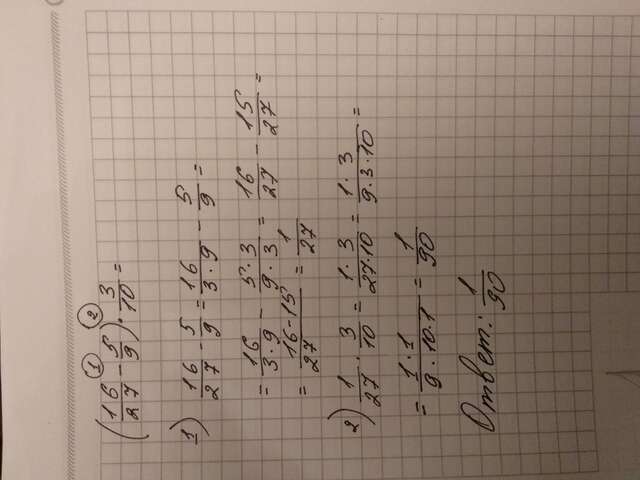 ① ②
(16/27 - 5/9) · 3/10 =
1) 16/27 - 5/9 = 16/3·9 - 5/9 =
= 16/3·9 - 5·3/9·3 = 16/27 - 15/27 =
= 16-15/27 = 1/27
2) 1/27 · 3/10 = 1·3/27·10 = 1·3/9·3·10 =
= 1·1/9·10·1 = 1/90
Ответ: 1/90